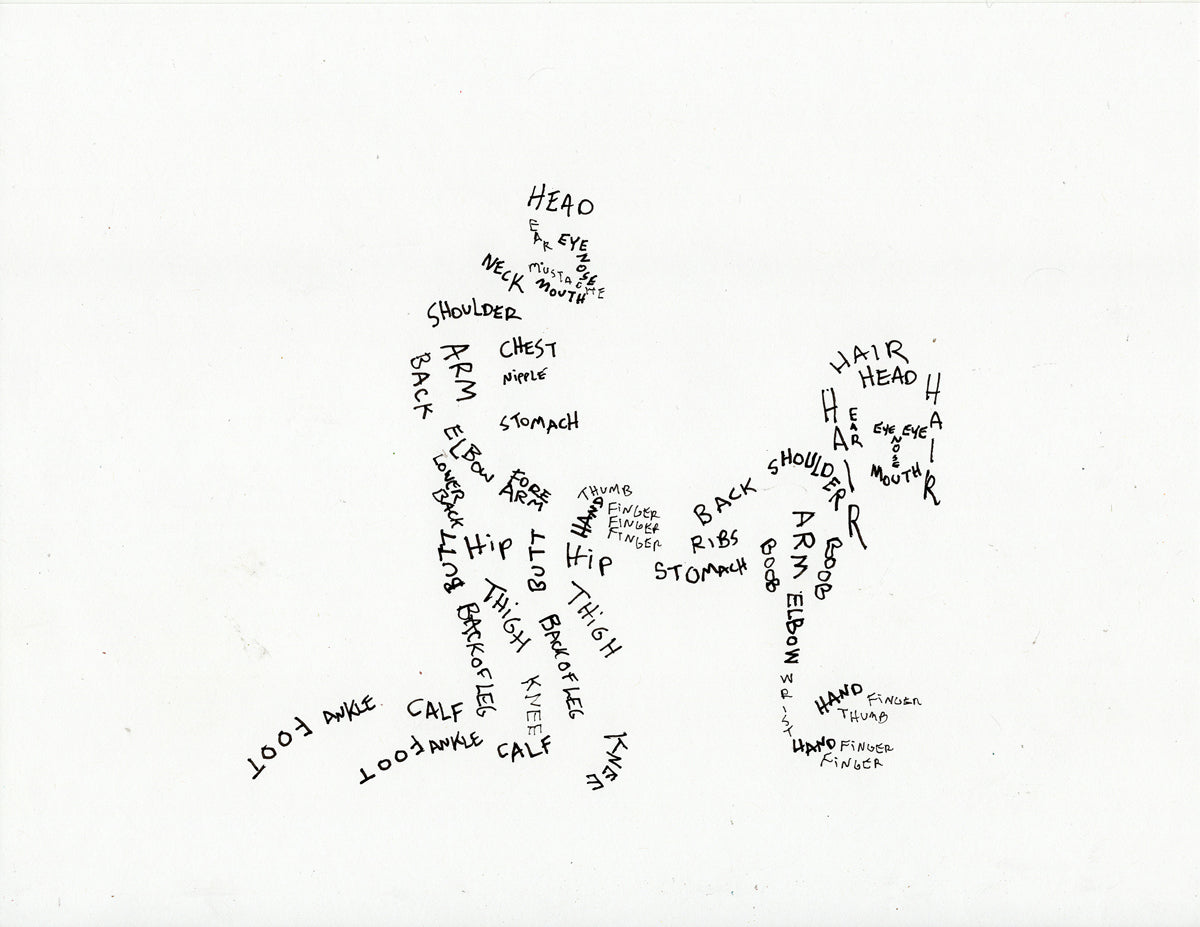 HEAD
EAR
EYE
NOSE
MUSTACHE
MOUTH
NECK
SHOULDER
ARM
BACK
CHEST
NIPPLE
STOMACH
ELBOW
LOWER
BACK
FORE
ARM
THUMB
HAND
FINGER
FINGER
FINGER
BUTT
HIP
BUTT
HIP
THIGH
THIGH
BACK OF LEG
BACK OF LEG
KNEE
KNEE
CALF
ANKLE
FOOT
CALF
ANKLE
FOOT
HAIR
HEAD
HAIR
HAIR
EAR
EYE EYE
NOSE
MOUTH
SHOULDER
BACK
RIBS
STOMACH
BOOB
ARM
BOOB
ELBOW
WRIST
HAND FINGER
THUMB
HAND FINGER
FINGER